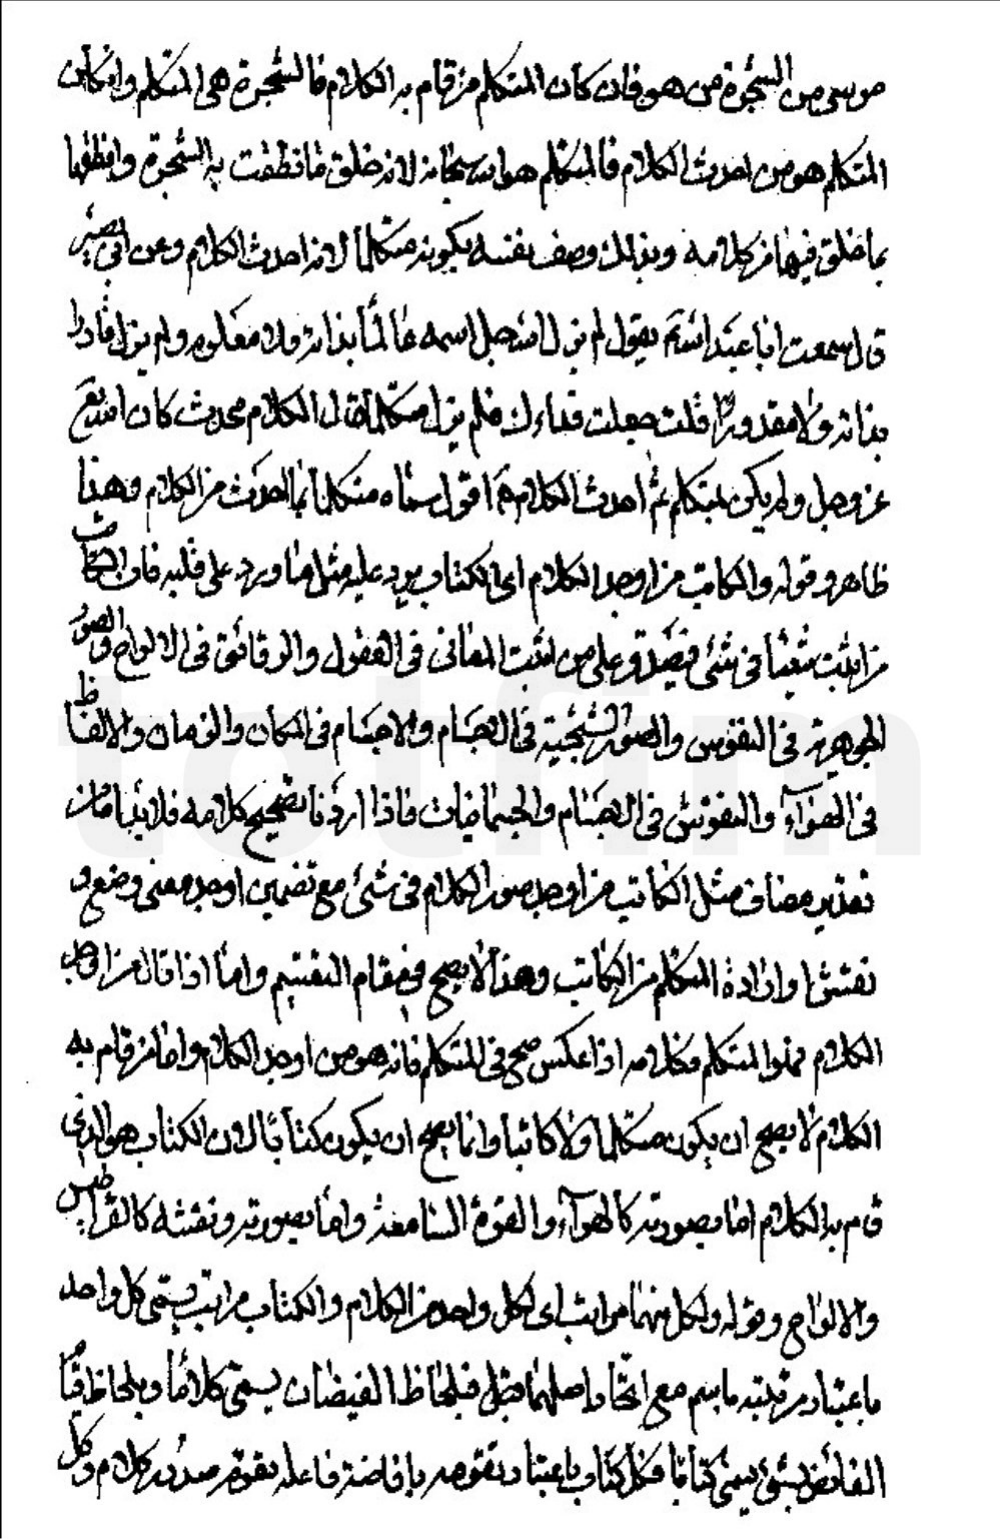 موسى من الشجرة من هو فان كان المتكلم من قام به الكلام فالشجرة هي المتكلم وان كان
المتكلم هو من احدث الكلام فالمتكلم هو الله سبحانه لانه خلق ما نطقت به الشجرة وانطقها
بما خلق فيها من كلامه وبذلك وصف نفسه بكونه متكلما لانه احدث الكلام وعن ابي بصير
قال سمعت ابا عبد الله ع يقول لم يزل الله جل اسمه عالما بذاته ولا معلوم ولم يزل قادرا
بذاته ولا مقدور قلت جعلت فداءك فلم يزل متكلما قال الكلام محدث كان الله
عز وجل ولم يكن بمتكلم ثم احدث الكلام اقول سماه متكلما بما احدث من الكلام وهذا
ظاهر وقوله والكاتب من اوجد الكلام اي الكتاب يرد عليه مثل ما ورد على قلبه فان الكاتب
من اثبت شيئا في شئ فيصدق على من اثبت المعاني في العقول والرقائق في الالواح والصور
الجوهرية في النفوس والصور الشبحية في الاجسام والاجسام في المكان والزمان والالفاظ
في الهوآء والنقوش في الاجسام والجسمانيات فاذا اردنا تصحيح كلامه فلا بد لنا من
تقدير مضاف مثل الكاتب من اوجد صور الكلام في شئ مع تضمين اوجد معنى وضع و
نقش او ارادة المتكلم من الكاتب وهذا لا يصح في مقام التقسيم واما اذا قال من اوجد
الكلام فهو المتكلم فكلامه اذا عكس صح في المتكلم فانه هو من اوجد الكلام واما من قام به
الكلام لا يصح ان يكون متكلما ولا كاتبا وانما يصح ان يكون كتابا لان الكتاب هو الذي
قام به الكلام اما بصورته كالهوآء والقوة السامعة واما بصورته ونقشه كالقراطيس
والالواح وقوله ولكل منهما مراتب اي لكل واحد من الكلام والكتاب مراتب يسمى كل واحد
باعتبار مرتبته باسم مع اتحاد اصلهما قبل فبلحاظ الفيضان يسمى كلاما وبلحاظ قيام
الفائض بشئ يسمى كتابا فكل كتاب باعتبار تقومه بافاضة فاعله تقوم صدور كلام وكل